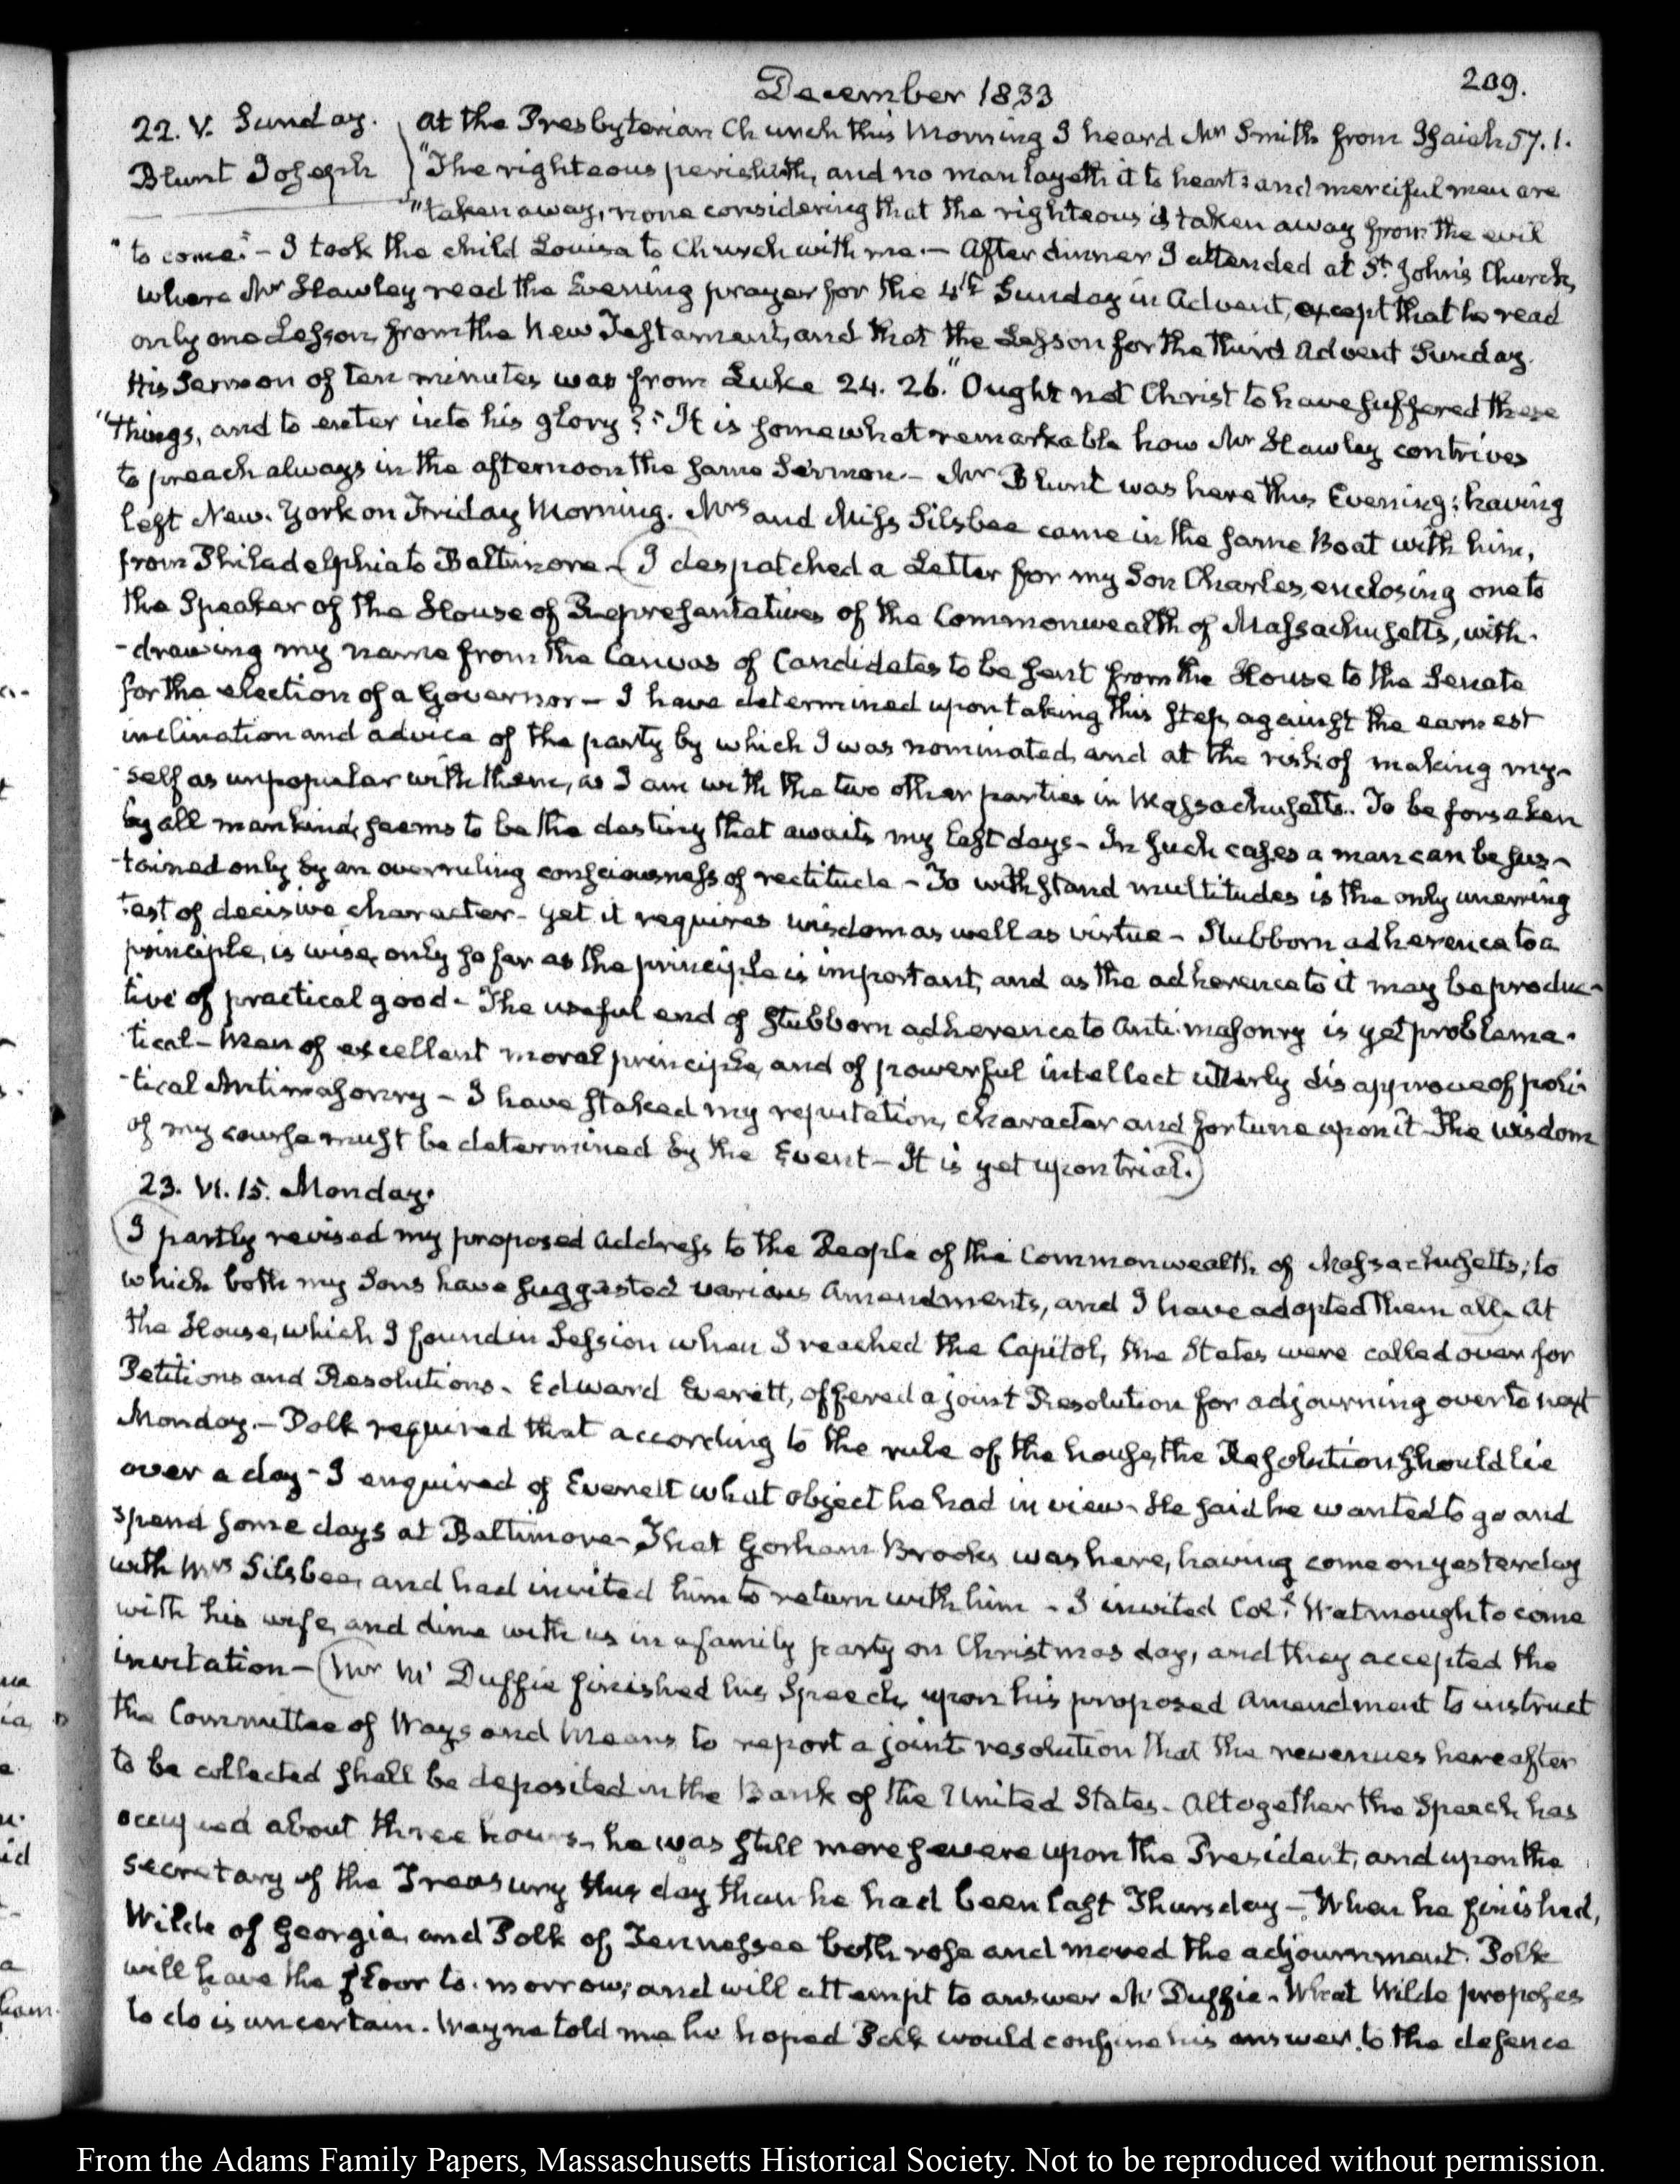 December 1833
209.
22. V. Sunday.
Blunt Joseph
At the Presbyterian Church this Morning I heard Mr Smith from Isaiah 57. 1.
"The righteous perisheth, and no man layeth it to heart: and merciful men are
"taken away, none considering that the righteous is taken away from the evil
"to come." – I took the child Louisa to Church with me. – After dinner I attended at St. John's Church,
where Mr Hawley read the Evening prayer for the 4th Sunday in Advent, except that he read
only one Lesson, from the New Testament, and that the Lesson for the third Advent Sunday.
His Sermon of ten minutes was from Luke 24. 26. "Ought not Christ to have suffered these
"things, and to enter into his glory?" It is somewhat remarkable how Mr Hawley contrives
to preach always in the afternoon the same Sermon. – Mr Blunt was here this Evening; having
left New-York on Friday Morning. Mrs and Miss Silsbee came in the same Boat with him,
from Philadelphia to Baltimore – (I despatched a Letter for my Son Charles, enclosing one to
the Speaker of the House of Representatives of the Commonwealth of Massachusetts, with-
-drawing my name from the Canvas of Candidates to be sent from the House to the Senate
for the election of a Governor – I have determined upon taking this step, against the earnest
inclination and advice of the party by which I was nominated, and at the risk of making my-
-self as unpopular with them, as I am with the two other parties in Massachusetts. To be forsaken
by all mankind, seems to be the destiny that awaits my last days – In such cases a man can be sus-
-tained only by an overruling consciousness of rectitude – To withstand multitudes is the only unerring
test of decisive character – yet it requires wisdom as well as virtue – Stubborn adherence to a
principle, is wise, only so far as the principle is important, and as the adherence to it may be produc-
tive of practical good – The useful end of stubborn adherence to Anti-masonry is yet problema-
-tical – Men of excellent moral principle, and of powerful intellect utterly disapprove of poli-
-tical Antimasonry – I have staked my reputation, character and fortune upon it – The wisdom
of my course must be determined by the Event – It is yet upon trial.)
23. VI. 15. Monday.
(I partly revised my proposed Address to the People of the Commonwealth of Massachusetts; to
which both my Sons have suggested various Amendments, and I have adopted them all.) At
the House, which I found in Session when I reached the Capitol, the States were called over for
Petitions and Resolutions. Edward Everett, offered a joint Resolution for adjourning over to next
Monday. – Polk required that according to the rule of the house, the Resolution should lie
over a day – I enquired of Everett what object he had in view – He said he wanted to go and
spend some days at Baltimore – That Gorham Brooks was here, having come on yesterday
with Mrs Silsbee, and had invited him to return with him – I invited Coll. Watmough to come
with his wife, and dine with us in a family party on Christmas day, and they accepted the
invitation – (Mr Mc Duffie finished his Speech, upon his proposed Amendment to instruct
the Committee of Ways and Means to report a joint resolution that the revenues hereafter
to be collected shall be deposited in the Bank of the United States – Altogether the Speech has
occupied about three hours – he was still more severe upon the President, and upon the
Secretary of the Treasury this day than he had been last Thursday – When he finished,
Wilde of Georgia, and Polk of Tennessee both rose and moved the adjournment. Polk
will have the floor to-morrow; and will attempt to answer Mc Duffie. What Wilde proposes
to do is uncertain. Wayne told me he hoped Polk would confine his answer to the defence
From the Adams Family Papers, Massachusetts Historical Society. Not to be reproduced without permission.